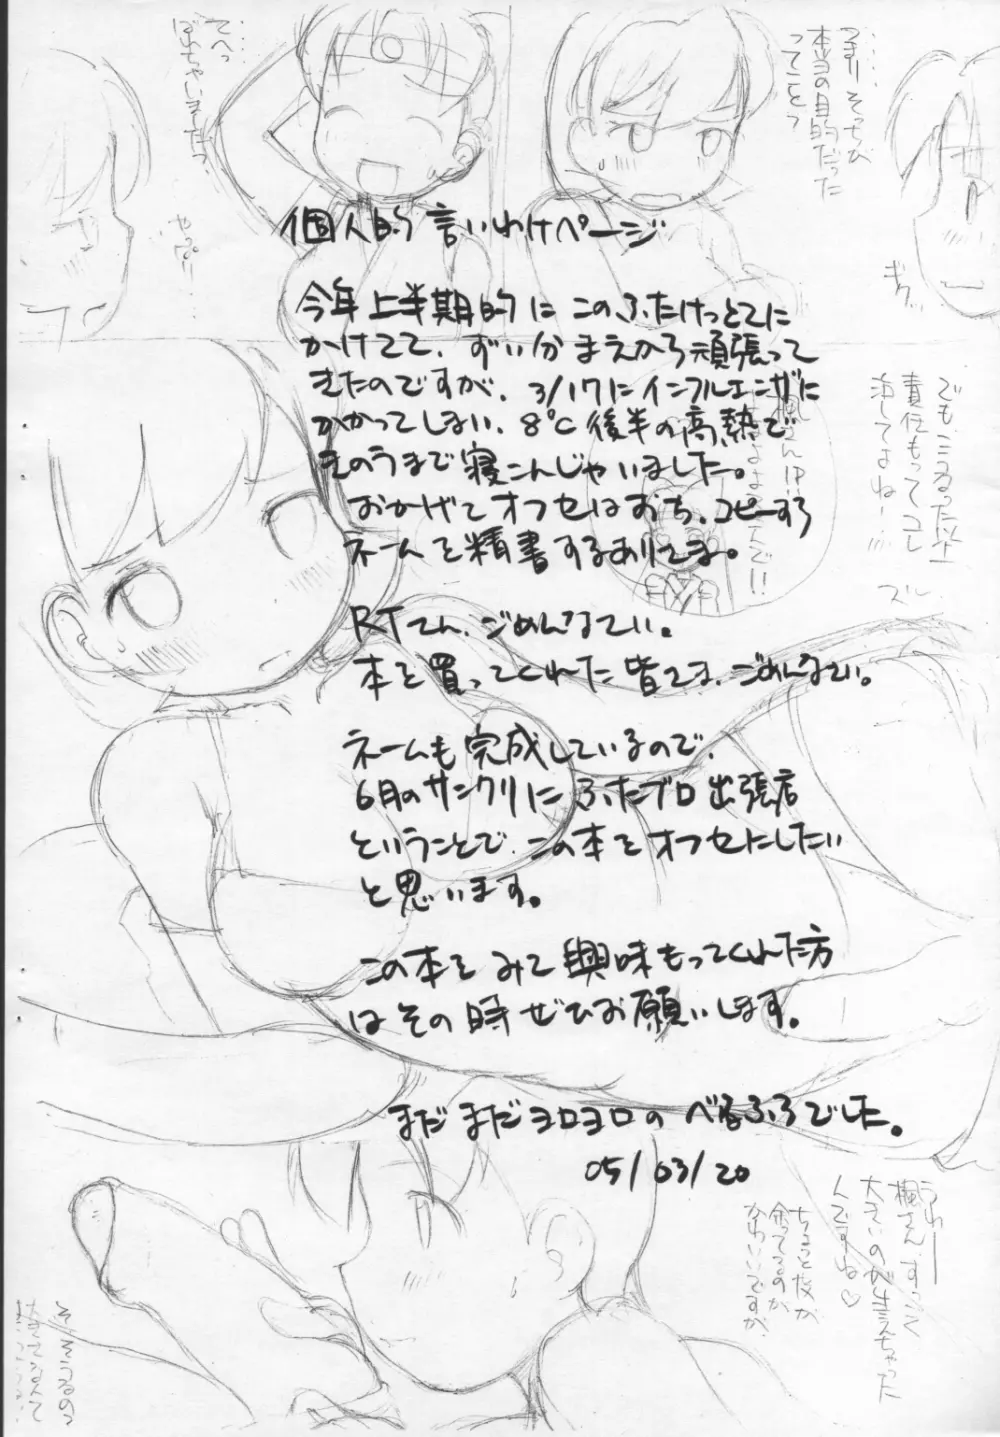 個人的言いわけページ
今年上半期的にこのふたけっとさに
かけてて、ずい分まえから頑張って
きたのですが、3/17にインフルエンザに
かかってしまい、8℃後半の高熱で
きのうまで寝こんじゃいました。
おかげさでオフセはおち、コピーすら
ネームを精書するありさま。
RTさん、ごめんなさい。
本を買ってくれた皆さま、ごめんなさい。
ネームも完成しているので、
6月のサンクリにふたブロ出張店
ということで、この本をオフセにしたい
と思います。
この本をみて興味もってくれた方
はその時ぜひお願いします。
まだまだヨロヨロのべるふろでした。
05/03/20
つまりそっちが
本当の目的だった
ってこと?
てへっ
ばれちゃいました?
やっぱー……
ギク
責任もってコレ
楓さん、すっごく
大きいのが生えちゃった
んですね♡
ちょっと皮が
余ってるのが
かわいいですが
そ、そうなの?